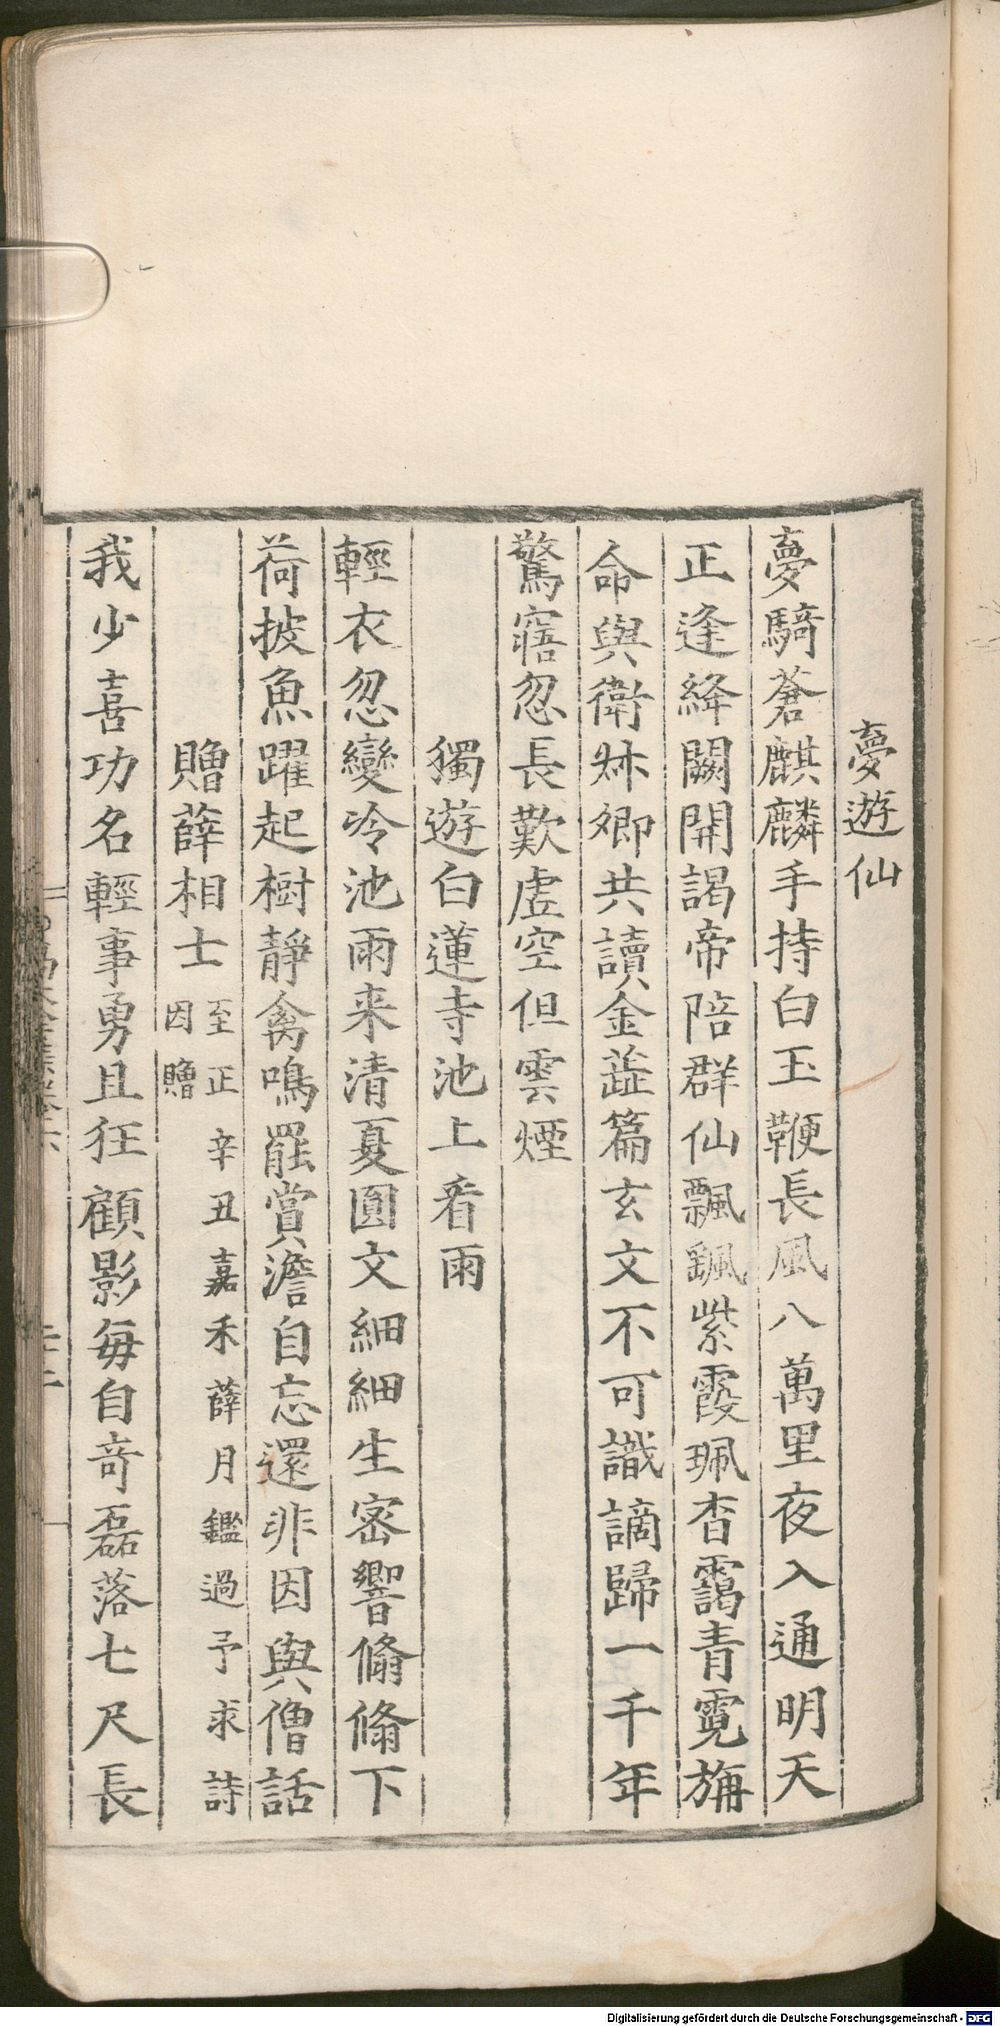 夢遊仙
夢騎蒼麒麟手持白玉鞭長風八萬里夜入通明天
正逢絳闕開謁帝陪群仙飄颻紫霞珮杳靄青霓旃
命與衛叔卿共讀金蕋篇玄文不可識謫歸一千年
驚寤忽長歎虛空但雲煙
獨遊白蓮寺池上看雨
輕衣忽變冷池雨来清夏圓文細細生密響翛翛下
荷披魚躍起樹靜禽鳴罷賞澹自忘還非因與僧話
贈薛相士 至正辛丑嘉禾薛月鑑過予求詩因贈
我少喜功名輕事勇且狂顧影每自竒磊落七尺長
Digitalisierung gefördert durch die Deutsche Forschungsgemeinschaft - DFG